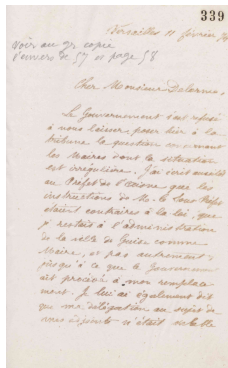 339
Versailles 11 février
Voir au gr. copie
l'envers de 57 et page 58
Cher Monsieur Delorme,
Le Gouvernement ont refusé
à nous laisser poser hier à la
tribune la question concernant
les Maires dont la situation
est irrégulière. J'ai écrit
au Préfet de l'Aisne que les
instructions de M. le Sous Préfet
étaient contraires à la loi, que
je restais à l'administration
de la ville de Guise comme
Maire, et pas autrement
jusqu'à ce que le Gouvernement
ait procédé à mon remplace
ment. Je lui ai également dit
que ma délégation au sujet de
mes adjoints n'était